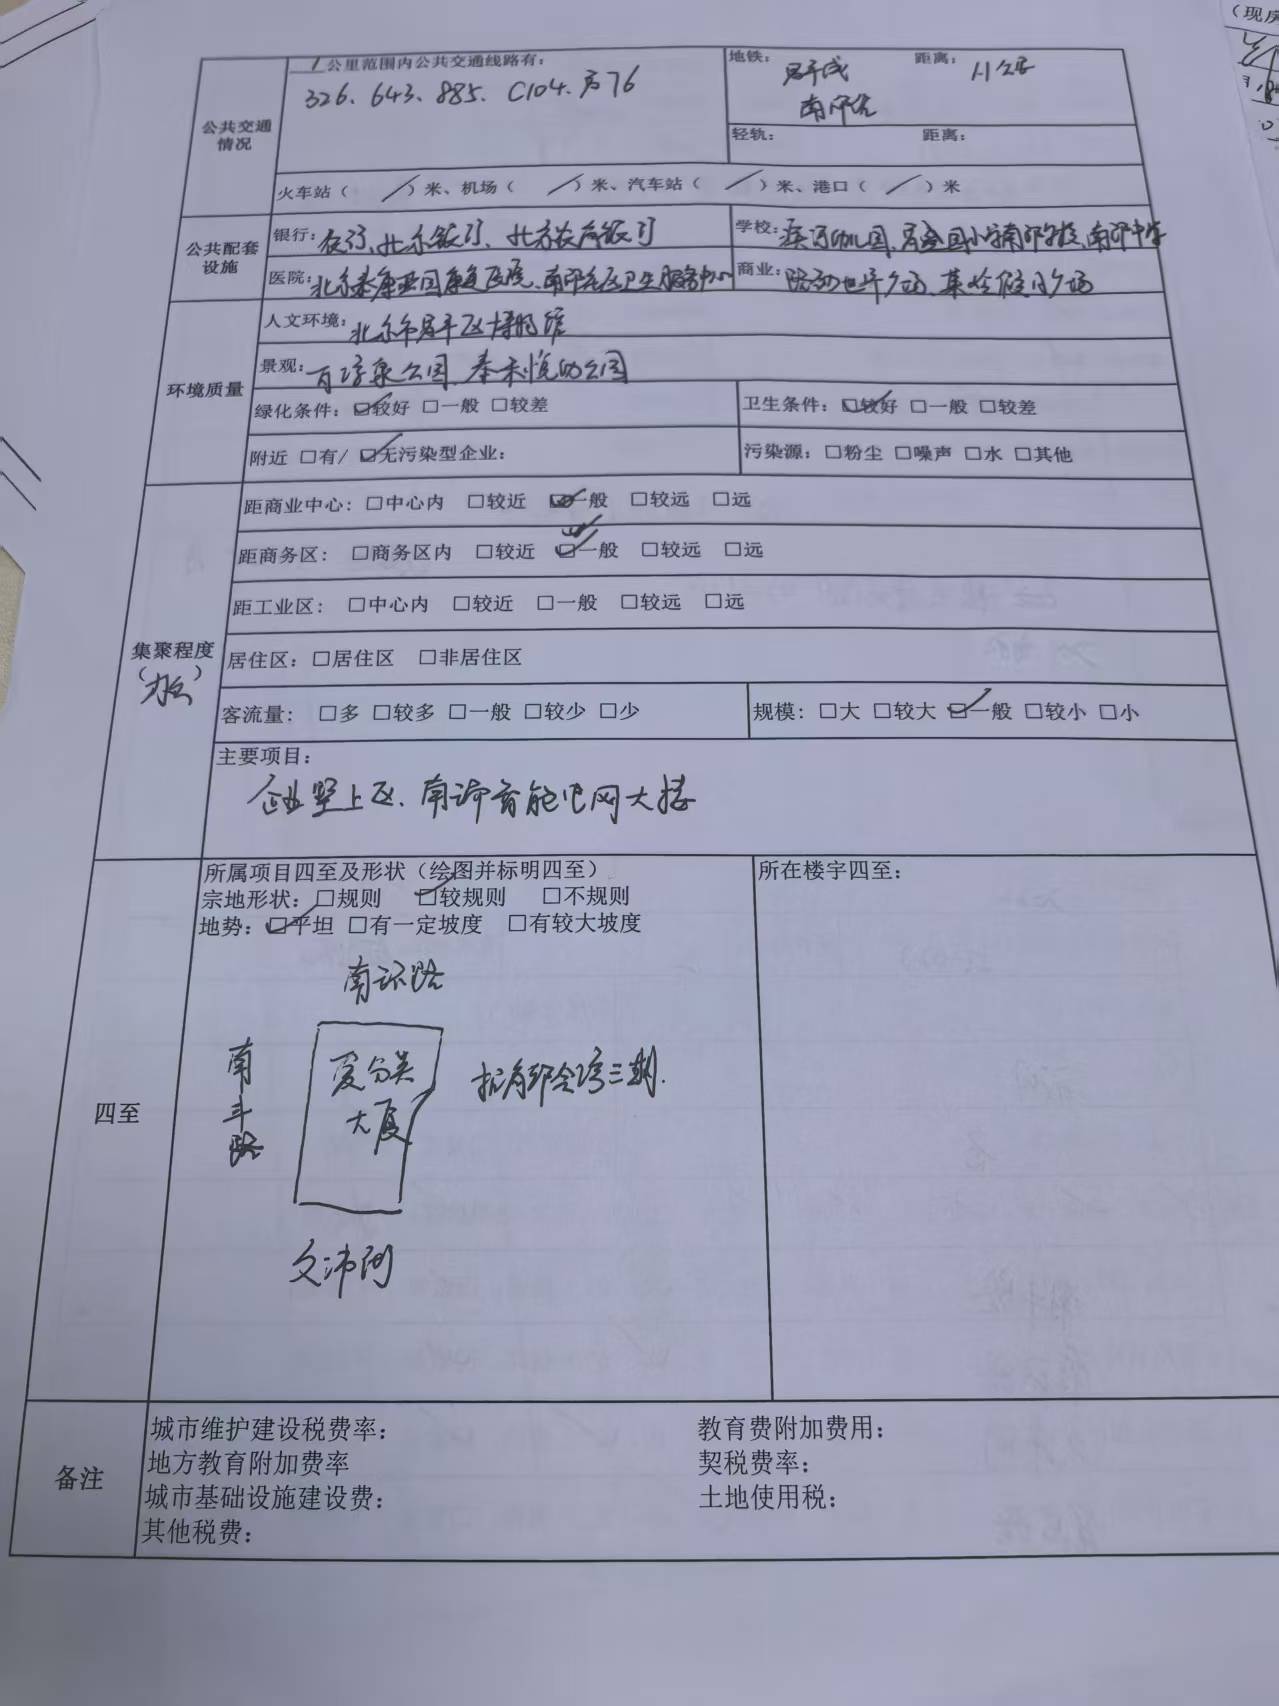 （现房
1公里范围内公共交通线路有：
326、643、885、C104、昌76
地铁： 昌平线 距离： 1.1公里
南邵站
公共交通情况
轻轨： 距离：
火车站（ / ）米、机场（ / ）米、汽车站（ / ）米、港口（ / ）米
公共配套设施
银行：农行、北京银行、北京农商银行
学校： 幼儿园、昌盛园小学南邵学校、南邵中学
医院：北京泰康燕园康复医院、南邵社区卫生服务中心
商业： 世界广场、 假日广场
环境质量
人文环境：北京市昌平区博物馆
景观：百泉公园、 公园
绿化条件：☑较好 □一般 □较差
卫生条件：☑较好 □一般 □较差
附近 □有/ ☑无污染型企业：
污染源：□粉尘 □噪声 □水 □其他
集聚程度（办公）
距商业中心：□中心内 □较近 ☑一般 □较远 □远
距商务区： □商务区内 □较近 ☑一般 □较远 □远
距工业区： □中心内 □较近 □一般 □较远 □远
居住区：□居住区 □非居住区
客流量： □多 □较多 □一般 □较少 □少
规模：□大 □较大 ☑一般 □较小 □小
主要项目：
企业墅上区、南 智能电网大楼
四至
所属项目四至及形状（绘图并标明四至）
宗地形状：□规则 ☑较规则 □不规则
地势：☑平坦 □有一定坡度 □有较大坡度
所在楼宇四至：
南环路
南丰路
爱分类大厦
三期
备注
城市维护建设税费率： 教育费附加费用：
地方教育附加费率 契税费率：
城市基础设施建设费： 土地使用税：
其他税费：